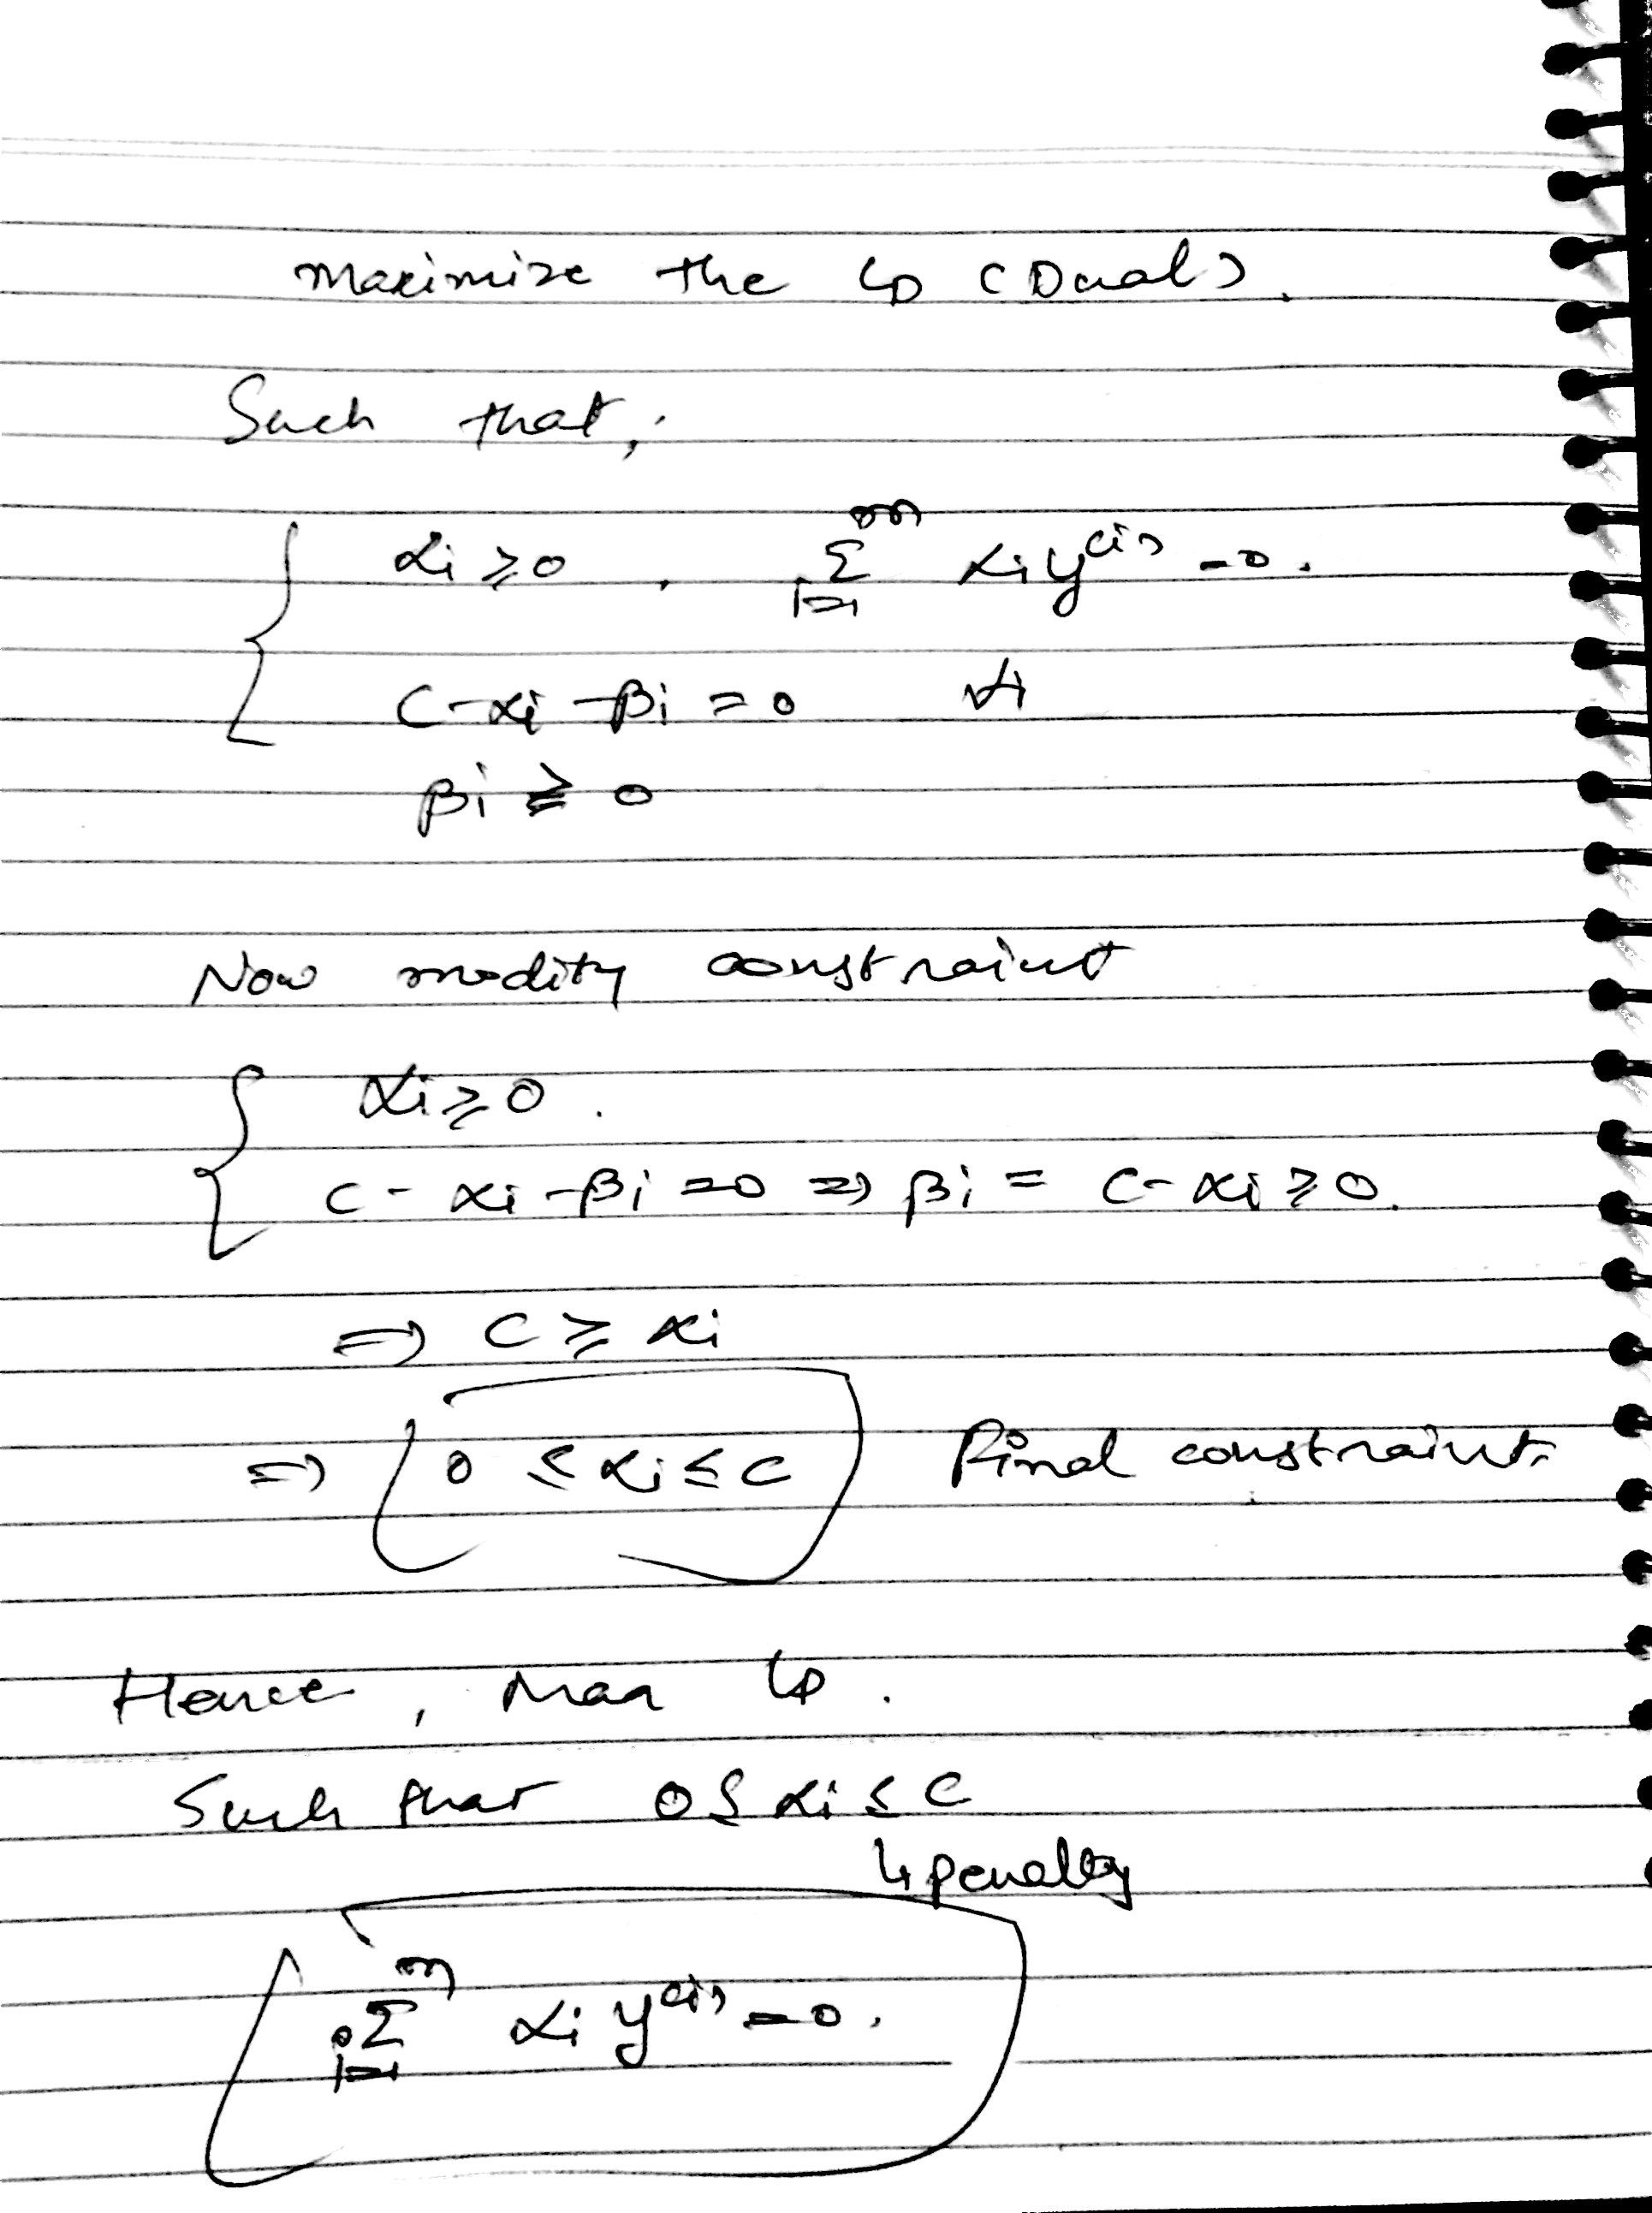 maximize the L_D (Dual).
Such that,
α_i ≥ 0 , Σ_{i=1}^{m} α_i y^{(i)} = 0.
C - α_i - β_i = 0 ∀i
β_i ≥ 0
Now modify constraint
α_i ≥ 0 .
C - α_i - β_i = 0 ⇒ β_i = C - α_i ≥ 0.
⇒ C ≥ α_i
⇒ 0 ≤ α_i ≤ C Final constraint.
Hence, Max L_D .
Such that 0 ≤ α_i ≤ C
↳ penalty
Σ_{i=1}^{m} α_i y^{(i)} = 0.